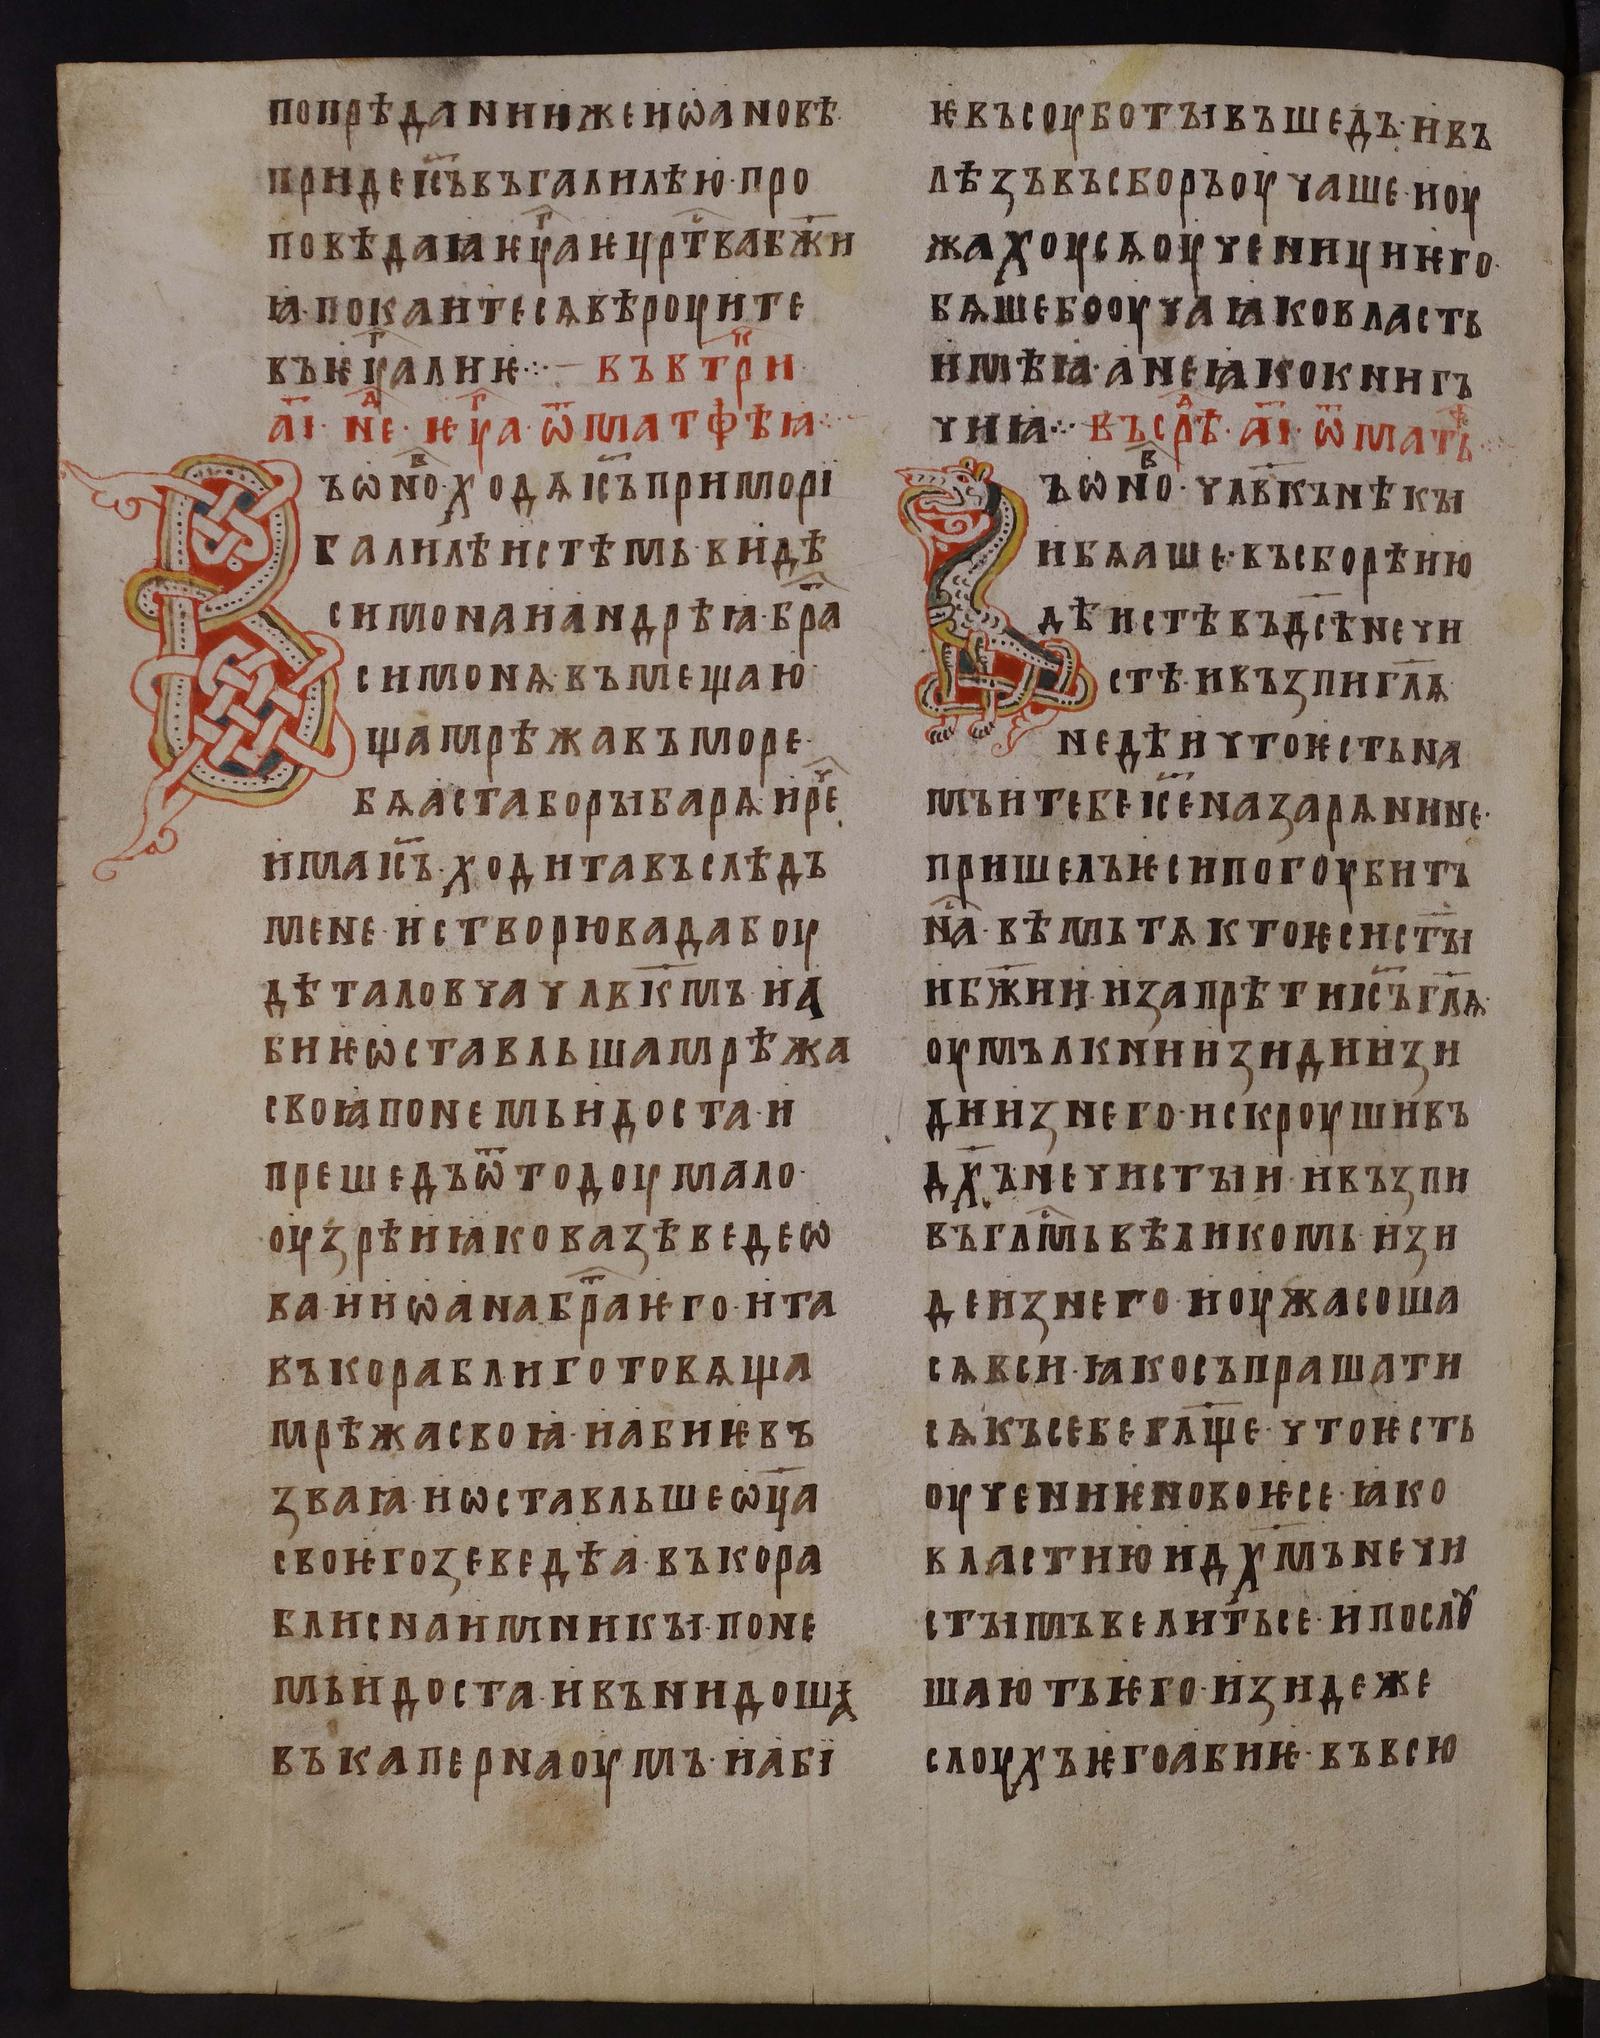 попрѣданиижеиѡановѣ·
придеі҃съвъгалилѣю·про
повѣдаꙗѥуⷢ҇аѥцрⷭ҇твабж҃и
ꙗ·покаитесѧвѣроуите
въѥуⷢ҇алиѥ·:·— въвтрⷦ҇и
а҃і· неⷣ· ѥуⷢ҇а· ѿматфѣꙗ·:·
Въѡноⷡ· ходѧі҃съприморі
галилѣистѣмь·видѣ
симонаиандрѣꙗ·браⷮ
симонѧ·въмещаю
щамрѣжавъморе·
бѧастаборꙑбарѧ·иреⷱ
имаі҃съ·ходитавъслѣдъ
мене·истворювадабоу
дѣталовчачл҃вкмъ·иа
биѥѡставльшамрѣжа
своꙗпонемьидоста·и
прешедъѿтодоумало·
оузрѣиꙗковазѣведеѡ
ва·ииѡанабраⷮѥго·ита
въкораблиготовѧща
мрѣжасвоꙗ·иабиѥвъ
зваꙗ·иѡставльшеѡц҃а
своѥгозеведѣа·въкора
блиснаимникꙑ·поне
мьидоста·ивънидошѧ
въкапернаоумъ·иабі
ѥвъсоуботꙑвъшедъ·ивъ
лѣзъвъсборъоучаше·иоу
жахоусѧоученициѥго·
бѧшебооучаꙗковласть
имѣꙗ·анеꙗкокнигъ
чиꙗ·:· въсрⷣѣ· а҃і· ѿматѣⷴ·:·
Въѡноⷡ· чл҃вкънѣкꙑ
ибѧаше·въсборѣию
дѣистѣвъдс҃ѣнечи
стѣ·ивъзпигл҃ѧ
недѣичтоѥстьна
мъитебеі҃сеназарѧнине·
пришелъѥсипогоубитъ
наⷭ·вѣмьтѧктоѥсист҃ꙑ
ибж҃ии·изапрѣтиі҃съгл҃ѧ·
оумълкниизидиизи
диизнего·искроушивъ
дх҃ънечистꙑи·ивъзпи
въглⷭ҇мьвѣликомь·изи
деизнего·иоужасоша
сѧвси·ꙗкосъпрашати
сѧкъсебегл҃ще·чтоѥсть
оучениѥновоѥсе·ꙗко
властиюидх҃мънечи
стꙑмъвелитьсе·ипослꙋ
шаютьѥго·изидеже
слоухъѥгоабиѥ·въвсю